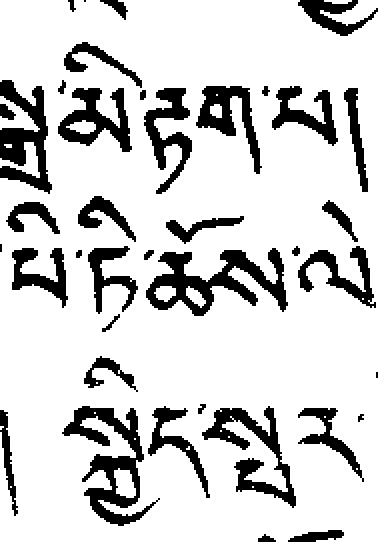 སྒྲ་མི་རྟག་པ།
པི་ཏི་ཆོས་ལེ
། སྐྱིད་སྤར་